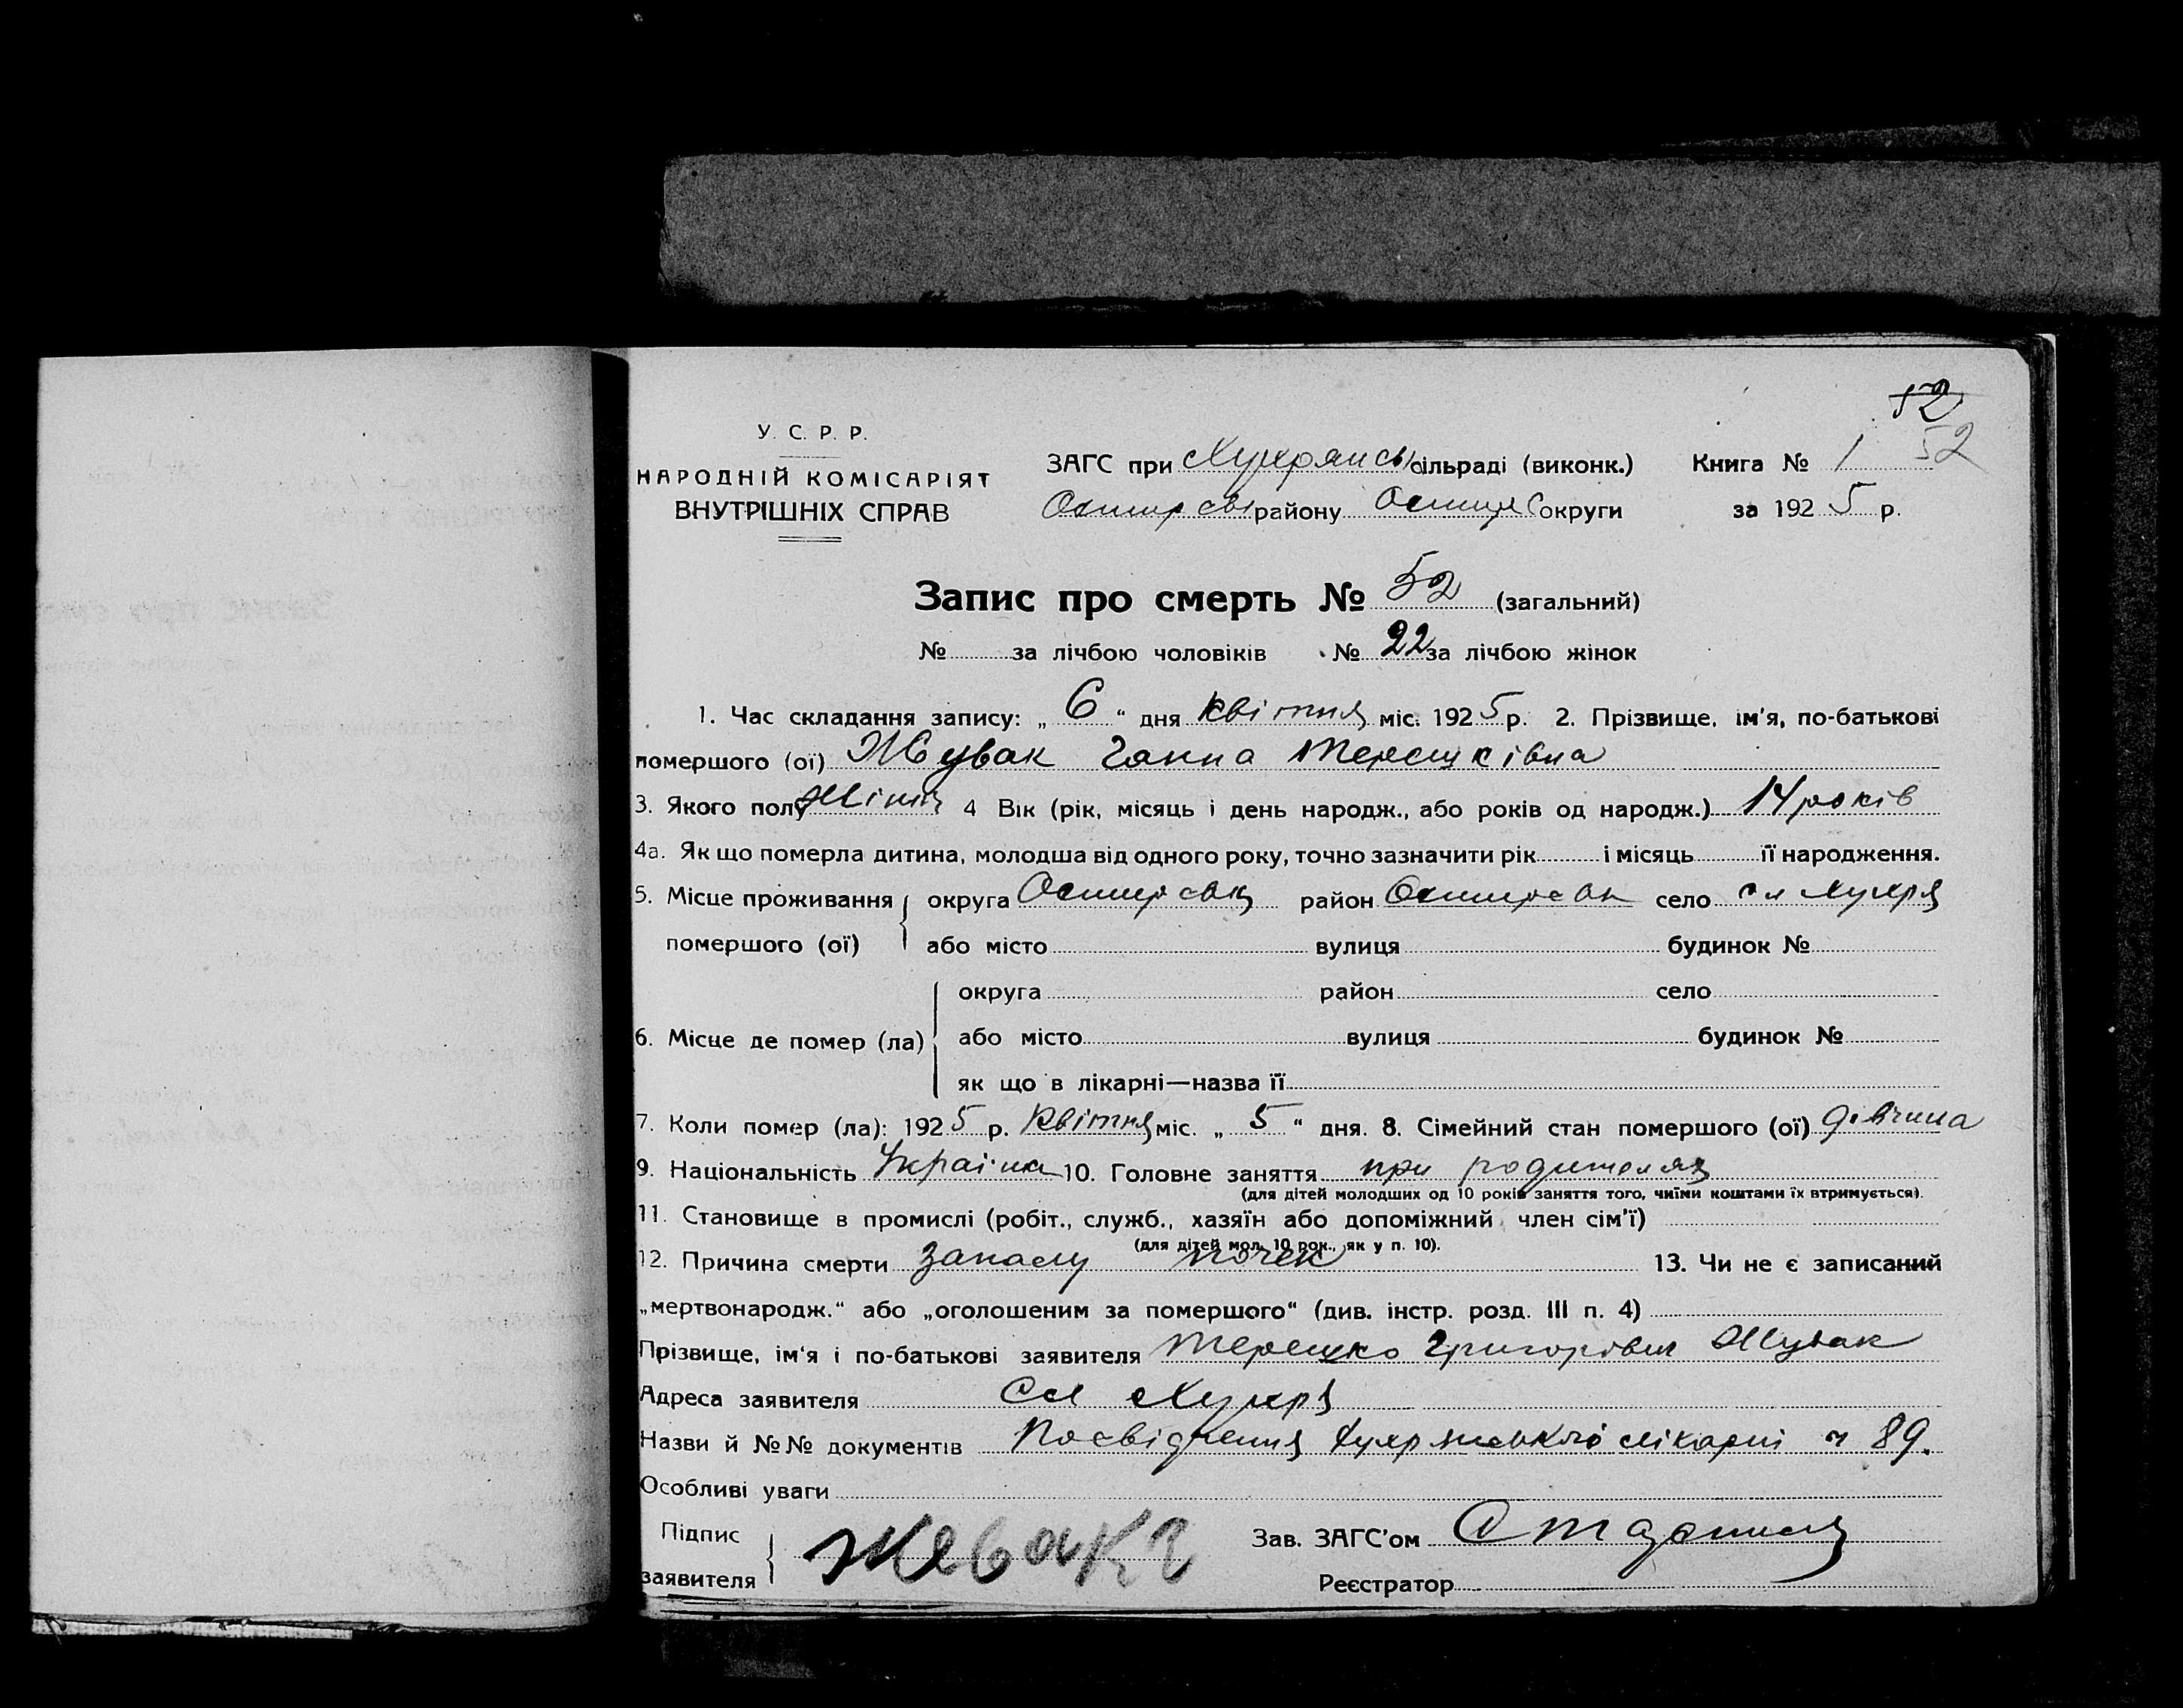 52
У. С. Р. Р.
НАРОДНІЙ КОМІСАРІЯТ
ВНУТРІШНІХ СПРАВ
ЗАГС при Хухрянсь сільраді (виконк.) Книга № 1 52
Охтирські району Охтирс округи за 1925 р.
Запис про смерть № 52 (загальний)
№ за лічбою чоловіків № 22 за лічбою жінок
1. Час складання запису: „ 6 “ дня квітня міс. 1925 р. 2. Прізвище, ім'я, по-батькові
помершого (ої) Жувак Ганна Терешківна
3. Якого полу 4 Вік (рік, місяць і день народж., або років од народж.) 14 років
4а. Як що померла дитина, молодша від одного року, точно зазначити рік і місяць її народження.
5. Місце проживання округа Охтирськ район Охтирськ село сл Хухря
помершого (ої) або місто вулиця будинок №
округа район село
6. Місце де помер (ла) або місто вулиця будинок №
як що в лікарні—назва її
7. Коли помер (ла): 1925 р. Квітня міс. „ 5 “ дня. 8. Сімейний стан помершого (ої) дівчина
9. Національність Україн 10. Головне заняття при родителях
(для дітей молодших од 10 років заняття того, чиїми коштами їх втримується).
11. Становище в промислі (робіт., служб., хазяїн або допоміжний член сім'ї)
(для дітей мол. 10 рок., як у п. 10).
12. Причина смерти почек 13. Чи не є записаний
„мертвонародж.“ або „оголошеним за помершого“ (див. інстр. розд. III п. 4)
Прізвище, ім'я і по-батькові заявителя Терешко Григорович Жувак
Адреса заявителя Сл Хухря
Назви й №№ документів Посвідчення Хухрянської лікарні 89.
Особливі уваги
Підпис
заявителя
Зав. ЗАГС'ом
Реєстратор